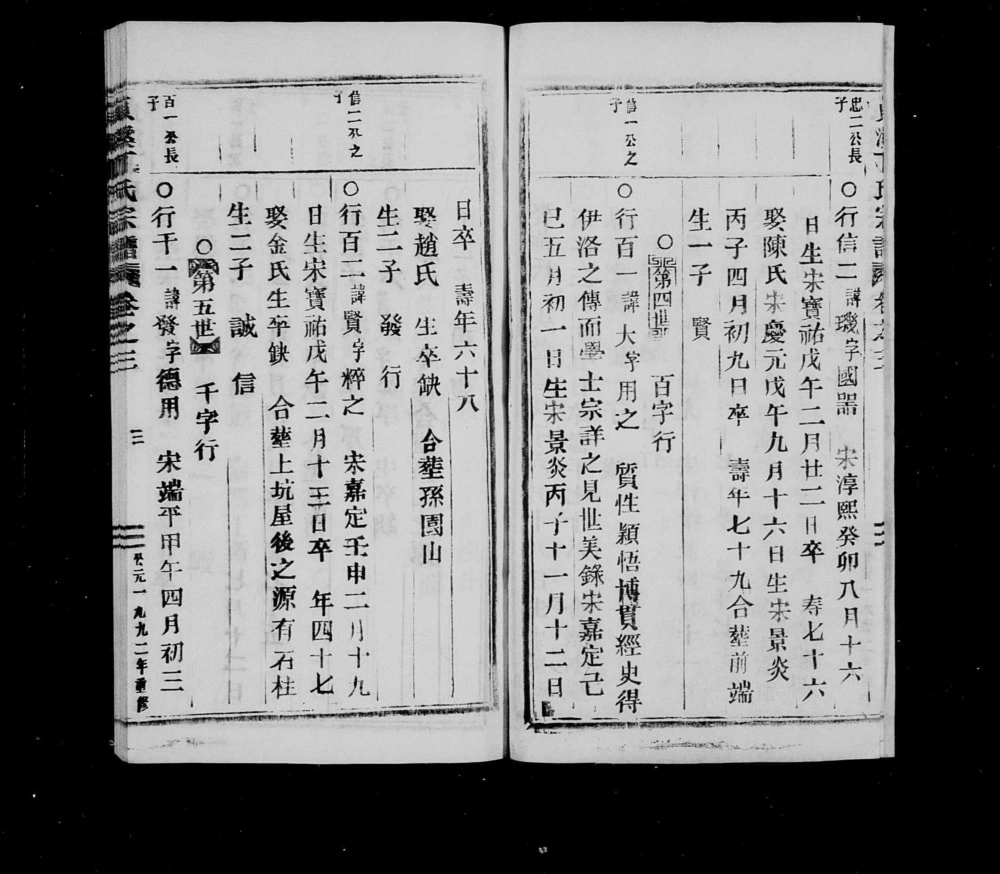 忠二公長子
○行信二諱璣字國器 宋淳熙癸卯八月十六
日生宋寶祐戊午二月廿二日卒 寿七十六
娶陳氏宋慶元戊午九月十六日生宋景炎
丙子四月初九日卒 壽年七十九合塟前端
生一子 賢
○第四世 百字行
信一公之子
○行百一諱大字用之 質性穎悟博貫經史得
伊洛之傳而學士宗詳之見世美錄宋嘉定己
巳五月初一日生宋景炎丙子十一月十二日
日卒 壽年六十八
娶趙氏 生卒缺 合塟孫園山
生二子 發 行
信二公之子
○行百二諱賢字粹之 宋嘉定壬申二月十九
日生宋寶祐戊午二月十三日卒 年四十七
娶金氏生卒缺 合塟上坑屋後之源有石柱
生二子 誠 信
○第五世 千字行
百一公長子
○行千一諱發字德用 宋端平甲午四月初三
丁氏宗譜 卷之三
三
公元一九九二年重修